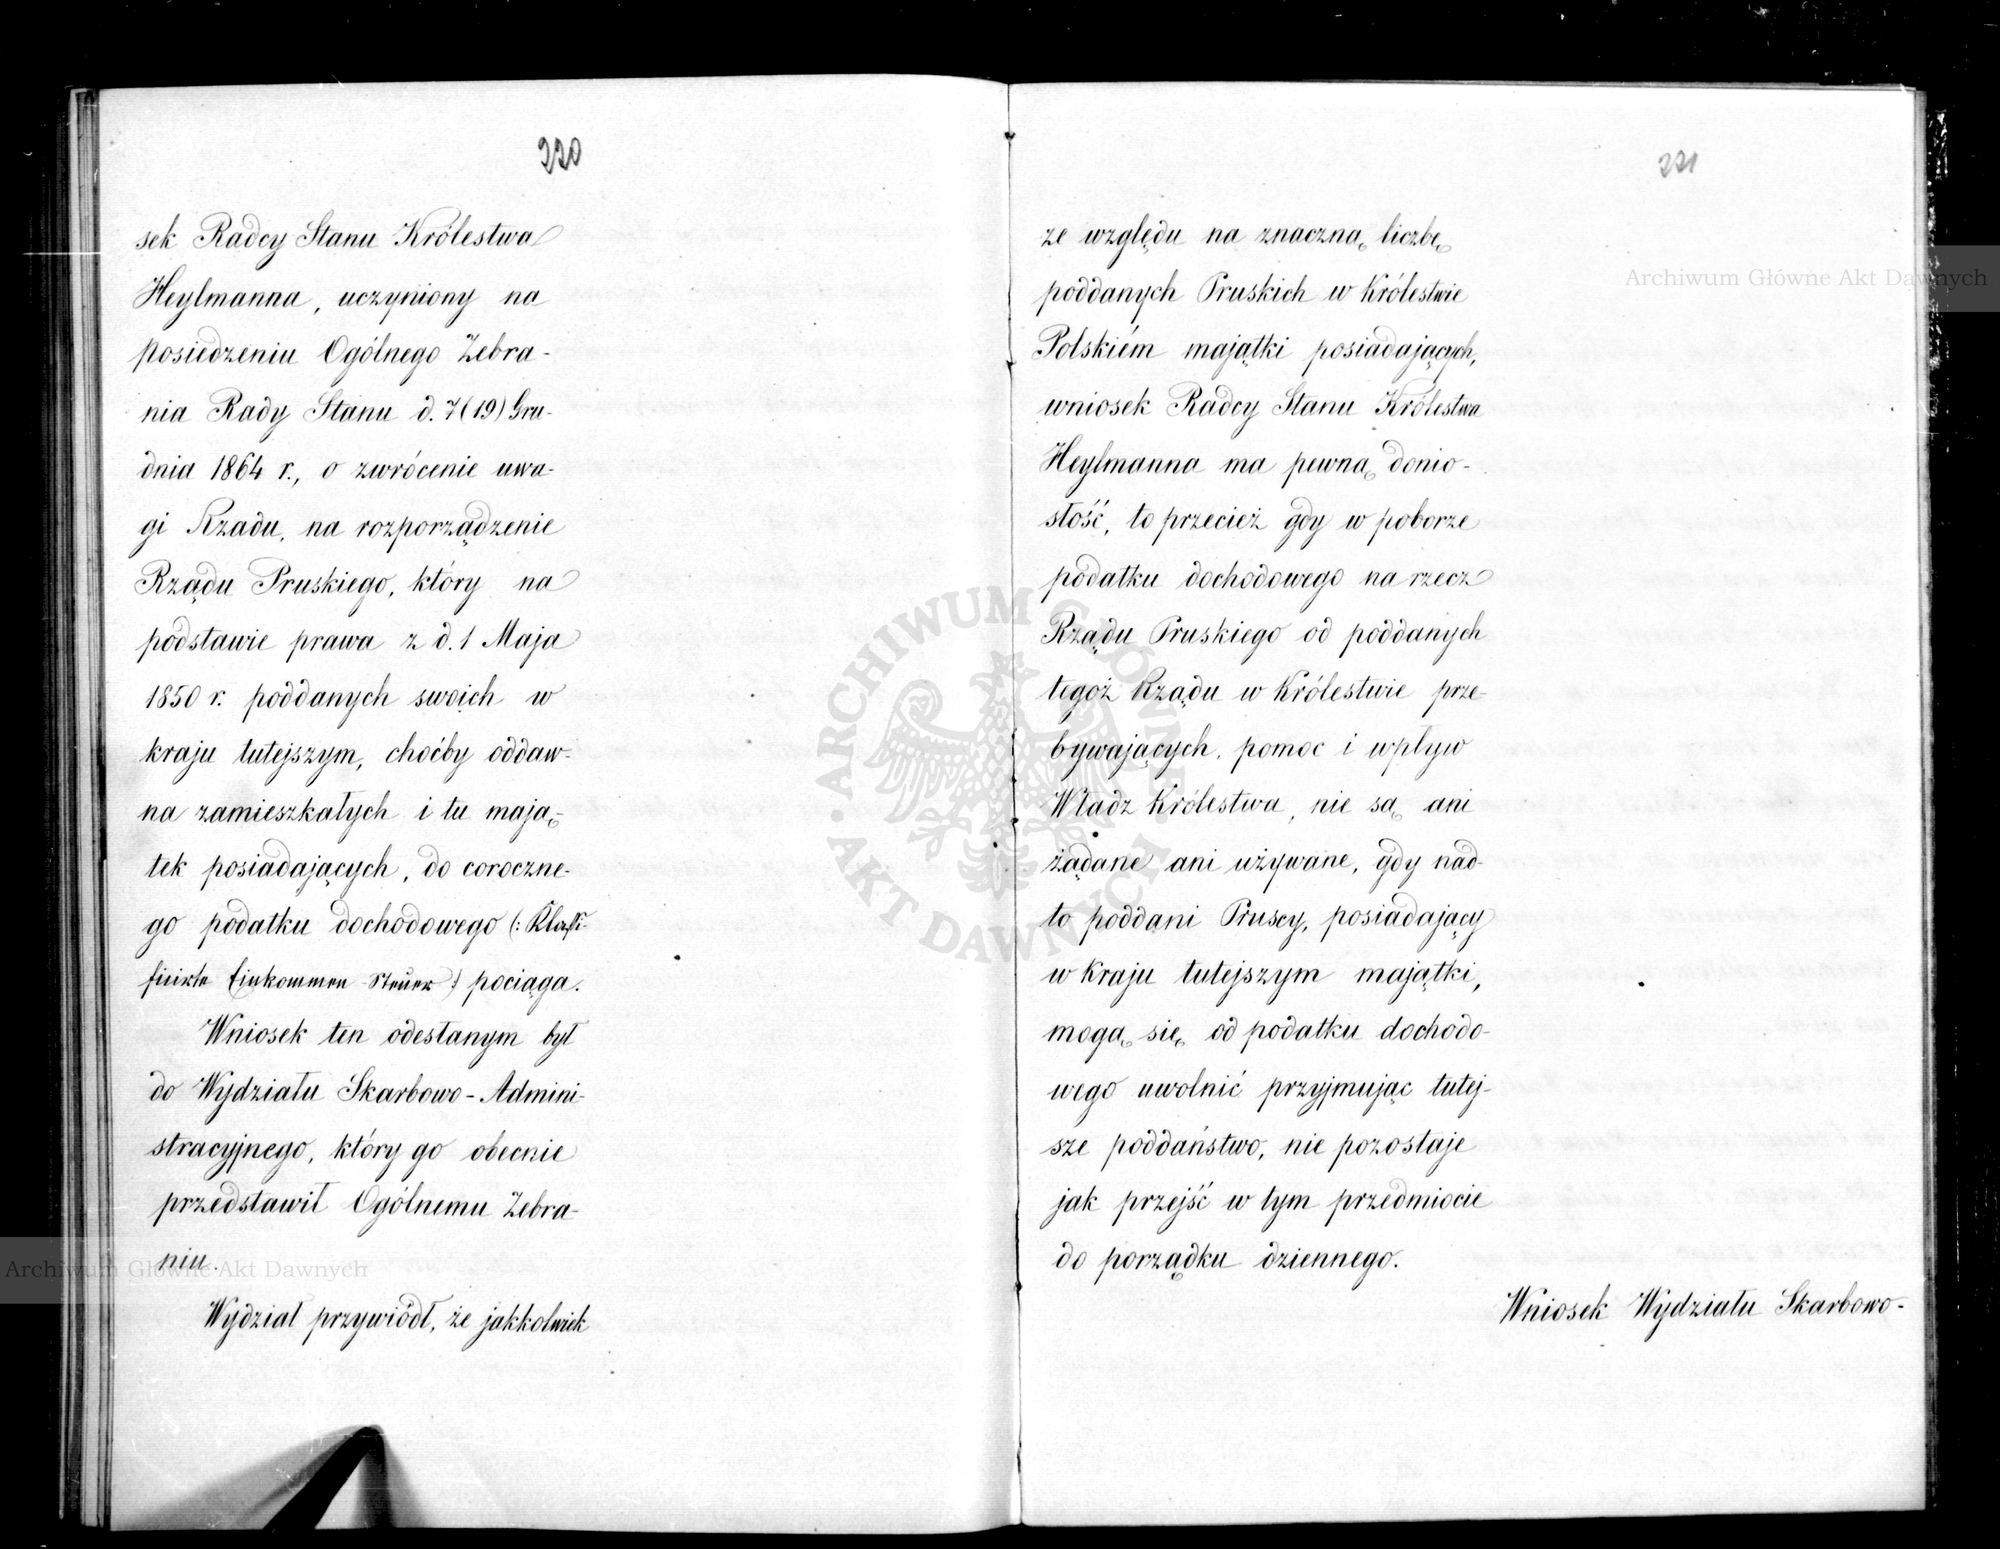 220
sek Radcy Stanu Królestwa
Heylmanna, uczyniony na
posiedzeniu Ogólnego Zebra-
nia Rady Stanu d. 7(19) Gru-
dnia 1864 r., o zwrócenie uwa-
gi Rządu, na rozporządzenie
Rządu Pruskiego, który na
podstawie prawa z d. 1 Maja
1850 r. poddanych swoich w
kraju tutejszym, choćby oddaw-
na zamieszkałych i tu mają-
tek posiadających, do coroczne-
go podatku dochodowego (: Klassi-
ficirte Einkommen Steuer :) pociąga.
Wniosek ten odesłanym był
do Wydziału Skarbowo-Admini-
stracyjnego, który go obecnie
przedstawił Ogólnemu Zebra-
niu.
Wydział przywiódł, że jakkolwiek
221
ze względu na znaczną liczbę
poddanych Pruskich w Królestwie
Polskiém majątki posiadających,
wniosek Radcy Stanu Królestwa
Heylmanna ma pewną donio-
słość, to przecież gdy w poborze
podatku dochodowego na rzecz
Rządu Pruskiego od poddanych
tegoż Rządu w Królestwie prze-
bywających, pomoc i wpływ
Władz Królestwa, nie są ani
żądane ani używane, gdy nad-
to poddani Pruscy, posiadający
w Kraju tutejszym majątki,
mogą się od podatku dochodo-
wego uwolnić przyjmując tutej-
sze poddaństwo, nie pozostaje
jak przejść w tym przedmiocie
do porządku dziennego.
Wniosek Wydziału Skarbowo-
Archiwum Główne Akt Dawnych
Archiwum Główne Akt Dawnych
ARCHIWUM GŁÓWNE AKT DAWNYCH